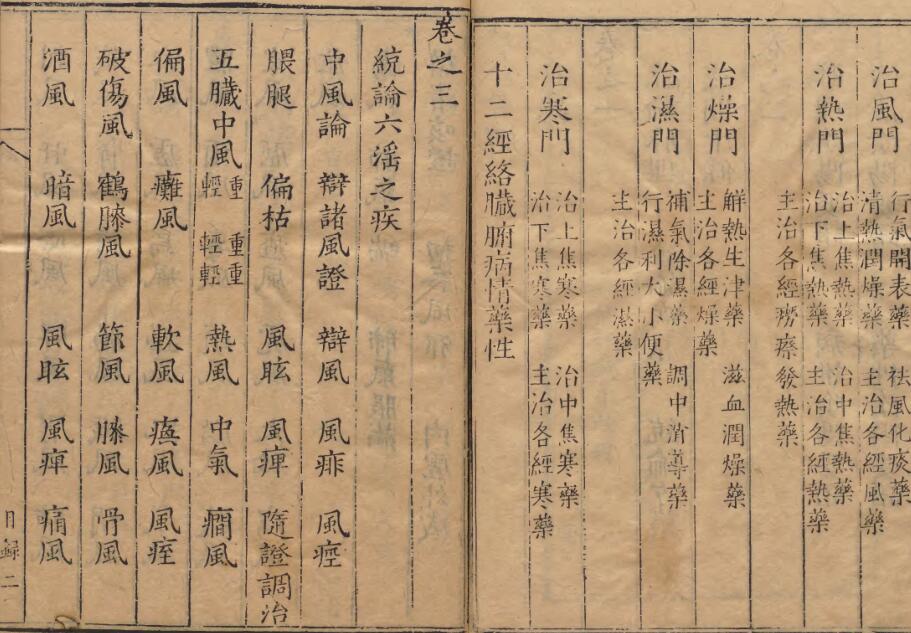 治風門
行氣開表藥 祛風化痰藥
清熱潤燥藥 主治各經風藥
治熱門
治上焦熱藥 治中焦熱藥
治下焦熱藥 主治各經熱藥
主治各經癆瘵發熱藥
治燥門
解熱生津藥 滋血潤燥藥
主治各經燥藥
治濕門
補氣除濕藥 調中消導藥
行濕利大小便藥
主治各經濕藥
治寒門
治上焦寒藥 治中焦寒藥
治下焦寒藥 主治各經寒藥
十二經絡臟腑病情藥性
卷之三
統論六滛之疾
中風論 辯諸風證 辯風 風痱 風痙
腲腿 偏枯 風眩 風痺 隨證調治
五臟中風 重輕 重輕 重輕 熱風 中氣 癇風
偏風 癱風 軟風 瘓風 風痓
破傷風 鶴膝風 節風 膝風 骨風
酒風 暗風 風眩 風痺 痛風
目録二